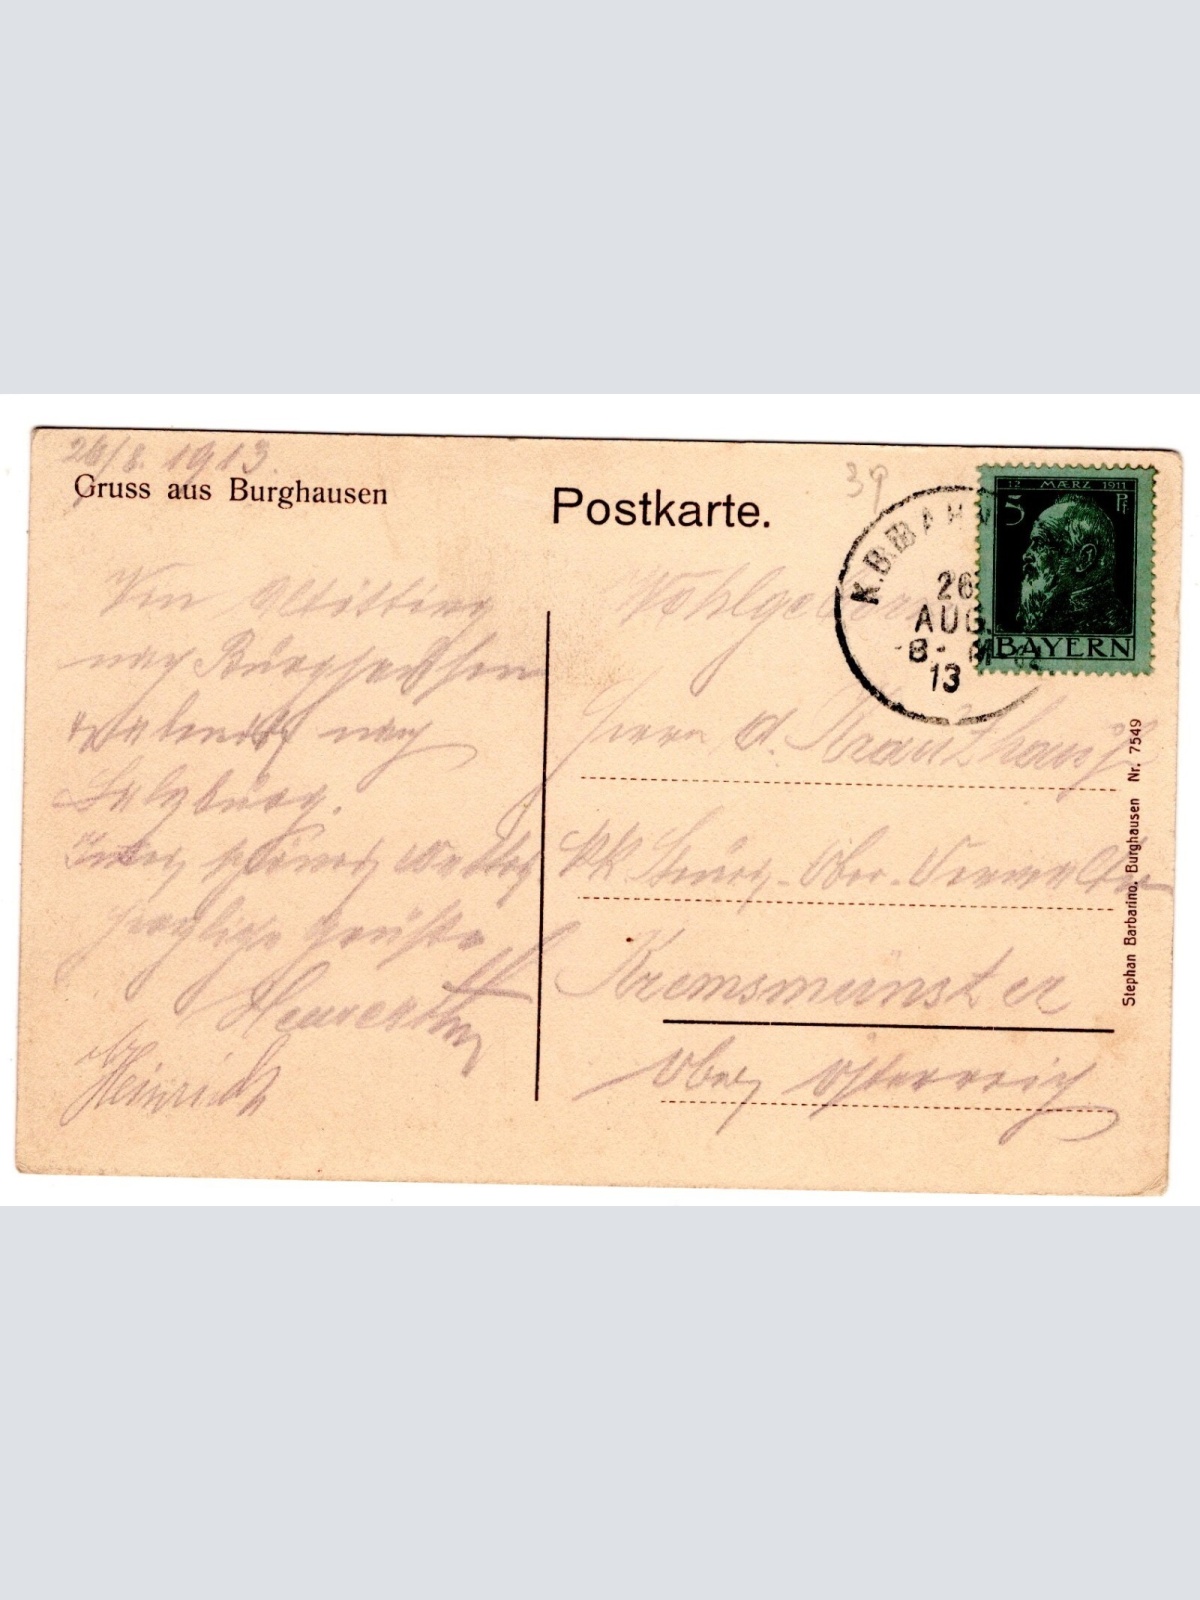 26/8. 1913.
Gruss aus Burghausen
Postkarte.
39
K.B.BAHN
26
AUG.
13
12 MÆRZ 1911
5 Pf
BAYERN
Von Altötting
nach Burghausen
nach
Salzburg.
schönes Wetter
herzliche Grüße
Heinrich
Wohlgeboren
Herrn
kk Ober-Verwalter
Kremsmünster
Ober Österreich
Stephan Barbarino, Burghausen Nr. 7549